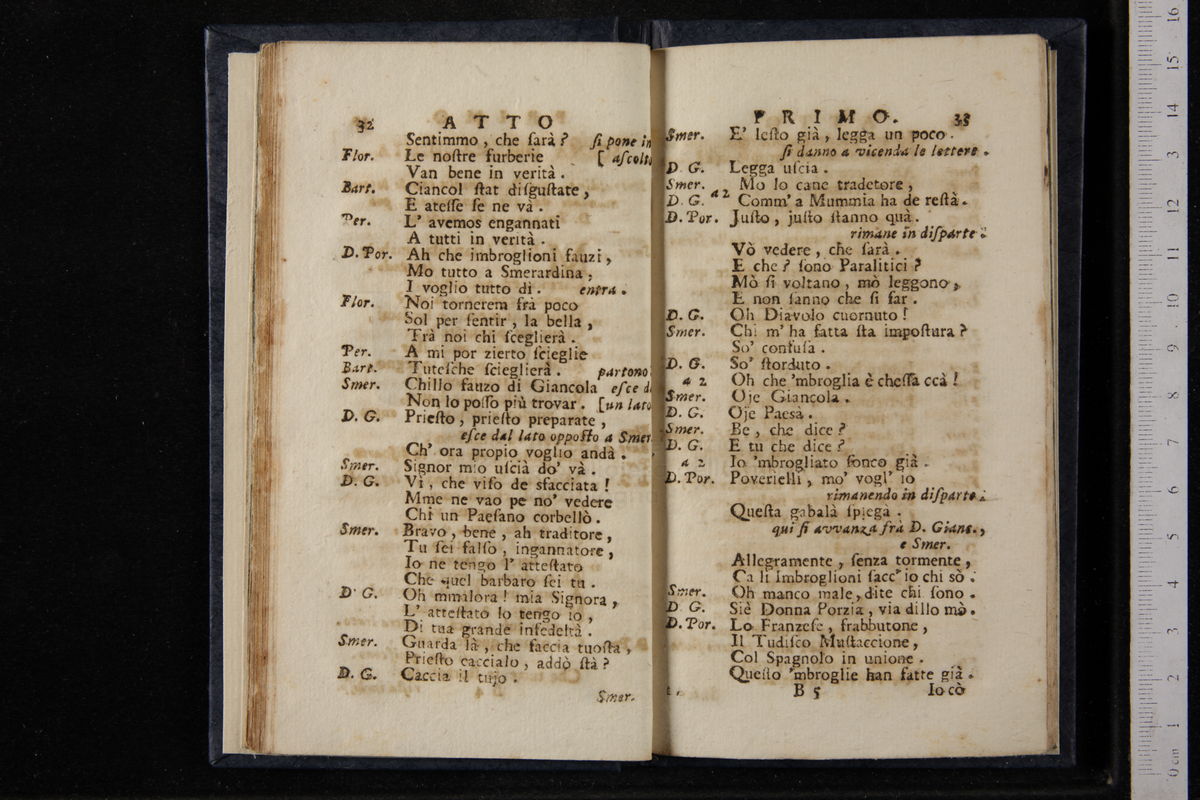 32 ATTO
Sentimmo , che ſarà ? ſi pone in
Flor. Le noſtre furberie [ aſcolto
Van bene in verità .
Bart. Ciancol ſtat diſguſtate ,
E ateſſe ſe ne và .
Per. L' avemos engannati
A tutti in verità .
D. Por. Ah che imbroglioni fauzi ,
Mo tutto a Smerardina ,
I voglio tutto di . entra .
Flor. Noi tornerem frà poco
Sol per ſentir , la bella ,
Trà noi chi ſceglierà .
Per. A mi por zierto ſcieglie
Bart. Tuteſche ſcieglierà . partono
Smer. Chillo fauzo di Giancola eſce da
Non lo poſſo più trovar . [un lato
D. G. Prieſto , prieſto preparate ,
eſce dal lato oppoſto a Smer
Ch' ora propio voglio andà .
Smer. Signor mio uſcià do' và .
D. G. Vi , che viſo de sfacciata !
Mme ne vao pe no' vedere
Chi un Paeſano corbellò .
Smer. Bravo , bene , ah traditore ,
Tu ſei falſo , ingannatore ,
Io ne tengo l' atteſtato
Che quel barbaro ſei tu .
D. G. Oh mmalora ! mia Signora ,
L' atteſtato lo tengo io ,
Di tua grande infedeltà .
Smer. Guarda là , che faccia tuoſta ,
Prieſto caccialo , addò ſtà ?
D. G. Caccia il tujo .
Smer.
PRIMO. 33
Smer. E' leſto già , legga un poco .
ſi danno a vicenda le lettere .
D. G. Legga uſcia .
Smer. Mo lo cane tradetore ,
D. G. a 2 Comm' a Mummia ha de reſtà .
D. Por. Juſto , juſto ſtanno quà .
rimane in diſparte .
Vò vedere , che ſarà .
E che ? ſono Paralitici ?
Mò ſi voltano , mò leggono ,
E non ſanno che ſi far .
D. G. Oh Diavolo cuornuto !
Smer. Chi m' ha fatta ſta impoſtura ?
So' confuſa .
D. G. So' ſtorduto .
a 2 Oh che 'mbroglia è cheſſa ccà !
Smer. Oje Giancola .
D. G. Oje Paesà .
Smer. Be , che dice ?
D. G. E tu che dice ?
a 2 Io 'mbrogliato ſonco già .
D. Por. Poverielli , mo' vogl' io
rimanendo in diſparte .
Queſta gabalà ſpiega .
qui ſi avvanza frà D. Gianc. ,
e Smer.
Allegramente , ſenza tormente ,
Ca li Imbroglioni ſacc' io chi sò .
Smer. Oh manco male, dite chi ſono .
D. G. Siè Donna Porzia , via dillo mò .
D. Por. Lo Franzeſe , frabbutone ,
Il Tudiſco Muſtaccione ,
Col Spagnolo in unione .
Queſto 'mbroglie han fatte già .
B 5 Io cò